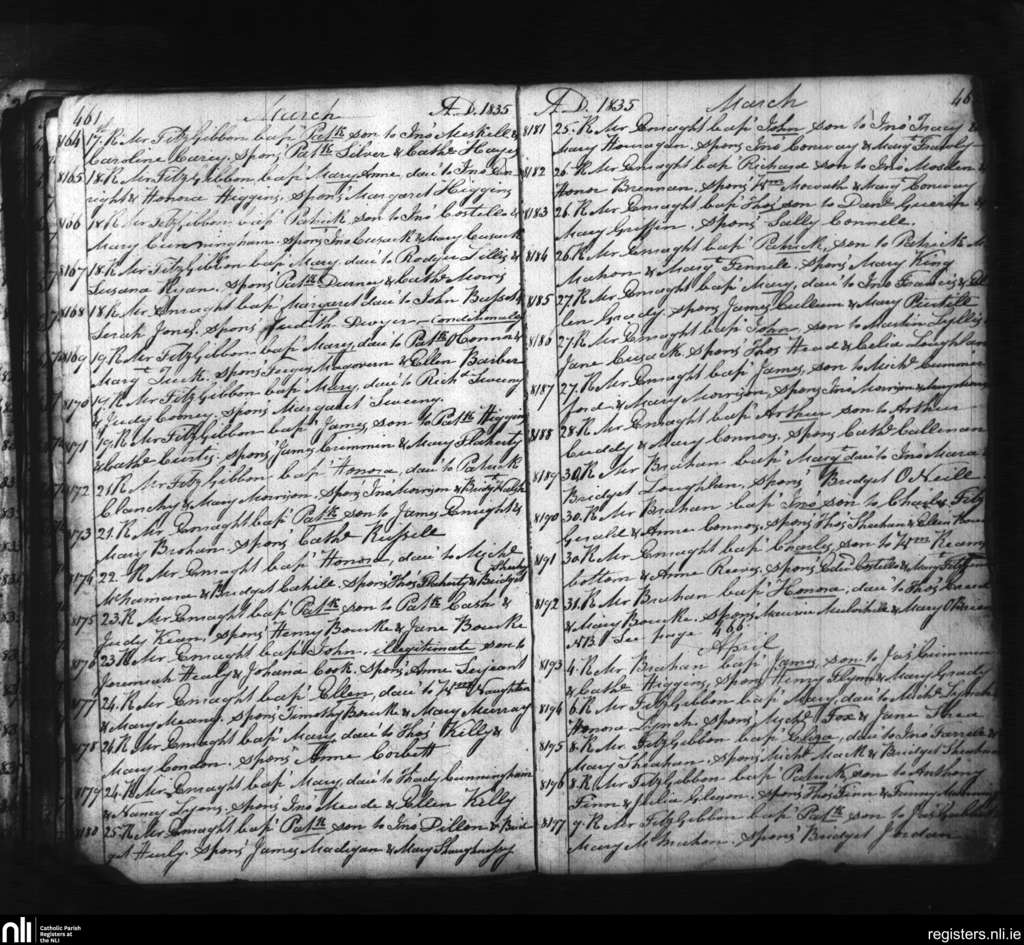 461 March A.D. 1835
8164 17th R Mr FitzGibbon bap' Patk son to Jno Meskell &
Caroline Carey. Spons' Patk Silver & Cathe Hayes
8165 18. R Mr FitzGibbon bap' Mary Anne, dau' to Jno En
right & Honora Higgins. Spons' Margaret Higgins
8166 18. R Mr FitzGibbon bap' Patrick son to Jno' Costello &
Mary Cunningham. Spons' Jno Cusack & Mary Cusack
8167 18. R Mr FitzGibbon bap' Mary, dau' to Rodger Lillis &
Susana Kean. Spons' Patk & Cathe Morris
8168 18 R Mr Enraght bap' Margaret dau' to John
Sarah Jones. Spons' Judith Dwyer conditionally
8169 19. R Mr FitzGibbon bap' Mary, dau' to Patk O'Connor &
Margt Tuck. Spons' & Ellen Barber
8170 19 R Mr FitzGibbon bap' Mary, dau' to Richd Sweeny
& Judy Cooney. Spons' Margaret Sweeny.
8171 19. R Mr FitzGibbon bap' James, son to Patk Higgins
& Cathe Curtis. Spons' James Crimmin & Mary Flaherty
8172 21. R Mr FitzGibbon bap' Honora, dau' to Patrick
Clanchy & Mary Morrison. Spons' Jno Morrison & Bridgt Walsh
8173 21. R Mr Enraght bap' Patk son to James Enright &
Mary Brohan. Spons' Cathe Russell
8174 22. R Mr Enraght bap' Honora, dau' to Miche
McNamara & Bridget Cahill. Spons' Thos Flaherty & Bridget Sheehy
8175 23. R Mr Enraght bap' Patk son to Patk Cash &
Judy Kean. Spons' Henry Bourke & Jane Bourke
8176 23 R Mr Enraght bap' John, illegitimate son to
Jeremiah Healy & Johana Cook. Spons' Anne Sargeant
8177 24. R Mr Enraght bap' Ellen, dau' to Wm Naughton
& Mary Meany. Spons' Timothy Bourke & Mary Murray
8178 24. R Mr Enraght bap' Mary, dau' to Thos' Kelly &
Mary Condon. Spons' Anne Corbett
8179 24. R Mr Enraght bap' Mary, dau' to Thady Cunningham
& Nancy Lyons. Spons' Jno Meade & Ellen Kelly
8180 25. R Mr Enraght bap' Patk son to Jno' Dillon & Brid
get Healy. Spons' James Madigan & Mary Shaughnessy
A.D. 1835 March 46
8181 25. R Mr Enraght bap' John son to Jno' Tracy &
Mary Houragan. Spons' Jno Conway & Mary Frawly
8182 26. R Mr Enraght bap' Richard son to Jno Mosden &
Honor Brennan. Spons' Wm Mcwath & Mary Conway
8183 26. R Mr Enraght bap' Thos' son to Danl Guerin &
Mary Griffin. Spons' Sally Connell
8184 26 R Mr Enraght bap' Patrick, son to Patrick M
Mahon & Margt Fennell. Spons' Mary King
8185 27. R Mr Enraght bap' Mary, dau' to Jno Francis & El
len Grady. Spons' James Cullum & Mary
8186 27. R Mr Enraght bap' John, son to Martin Lillis
Jane Cusack. Spons' Thos' Head & Celia Loughnan
8187 27. R Mr Enraght bap' James, son to Michl Cummin
ford & Mary Morrison. Spons' Jno Morrison &
8188 28. R Mr Enraght bap' Arthur son to Arthur
Cuddy & Mary Connor. Spons' Cathe Callinan
8189 30. R Mr Brahan bap' Maryt dau' to Jno Mara
Bridget Loughlan. Spons' Bridget O'Neill
8190 30. R Mr Brahan bap' Jno' son to Charles Fitz
Gerald & Anne Connor. Spons' Thos' Sheehan & Ellen
8191 30. R Mr Enraght bap' Charles, son to Wm Rams
bottom & Anne Reeves. Spons' Costello & Mary
8192 31. R Mr Brahan bap' Honora, dau' to Thos'
& Mary Bourke. Spons' & Mary O'Brien
NB. See page 466
April
8193 4. R Mr Brahan bap' James, son to Jas' Crimmin
& Cathe Higgins. Spons' Henry Flynn & Mary Grady
8194 6. R Mr FitzGibbon bap' Mary, dau' to Miche Lynch
Honora Lynch. Spons' Myche Fox & Jane Shea
8195 8. R Mr FitzGibbon bap' Eliza, dau' to Jno Farrell &
Mary Sheahan. Spons' Miche Mack & Bridget Sheahan
8196 8. R Mr FitzGibbon bap' Patrick, son to Anthony
Finn & Julia Gleeson. Spons' Thos Finn & Fanny
8197 9. R Mr FitzGibbon bap' Patk son to Jas'
Mary McMahon. Spons' Bridget Jordan
nli
Catholic Parish
Registers at
the NLI
registers.nli.ie